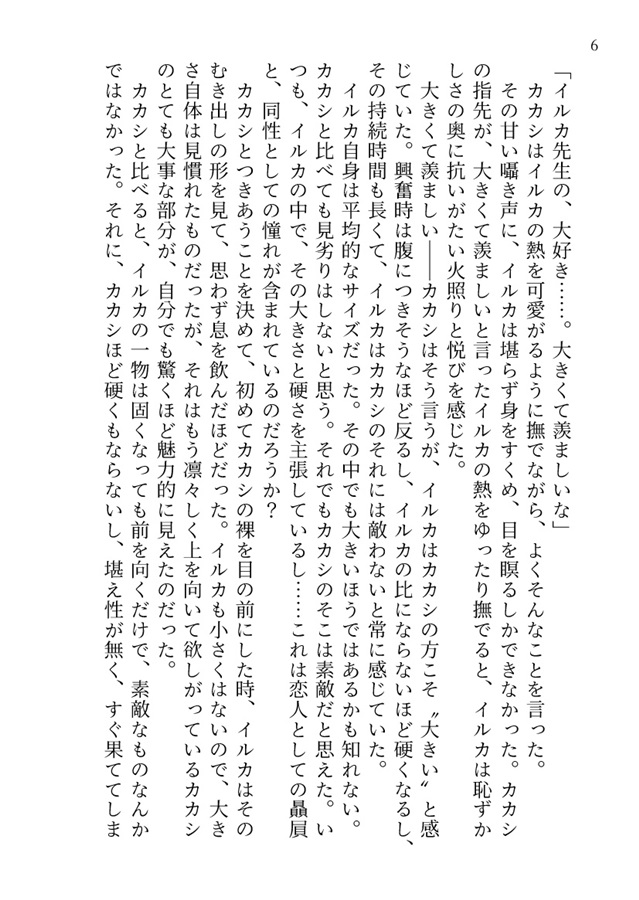 6
「イルカ先生の、大好き……。大きくて羨ましいな」
　カカシはイルカの熱を可愛がるように撫でながら、よくそんなことを言った。
　その甘い囁き声に、イルカは堪らず身をすくめ、目を瞑るしかできなかった。カカシ
の指先が、大きくて羨ましいと言ったイルカの熱をゆったり撫でると、イルカは恥ずか
しさの奥に抗いがたい火照りと悦びを感じた。
　大きくて羨ましい――カカシはそう言うが、イルカはカカシの方こそ〝大きい〟と感
じていた。興奮時は腹につきそうなほど反るし、イルカの比にならないほど硬くなるし、
その持続時間も長くて、イルカはカカシのそれには敵わないと常に感じていた。
　イルカ自身は平均的なサイズだった。その中でも大きいほうではあるかも知れない。
カカシと比べても見劣りはしないと思う。それでもカカシのそこは素敵だと思えた。い
つも、イルカの中で、その大きさと硬さを主張しているし……これは恋人としての贔屓
と、同性としての憧れが含まれているのだろうか？
　カカシとつきあうことを決めて、初めてカカシの裸を目の前にした時、イルカはその
むき出しの形を見て、思わず息を飲んだほどだった。イルカも小さくはないので、大き
さ自体は見慣れたものだったが、それはもう凛々しく上を向いて欲しがっているカカシ
のとても大事な部分が、自分でも驚くほど魅力的に見えたのだった。
　カカシと比べると、イルカの一物は固くなっても前を向くだけで、素敵なものなんか
ではなかった。それに、カカシほど硬くもならないし、堪え性が無く、すぐ果ててしま